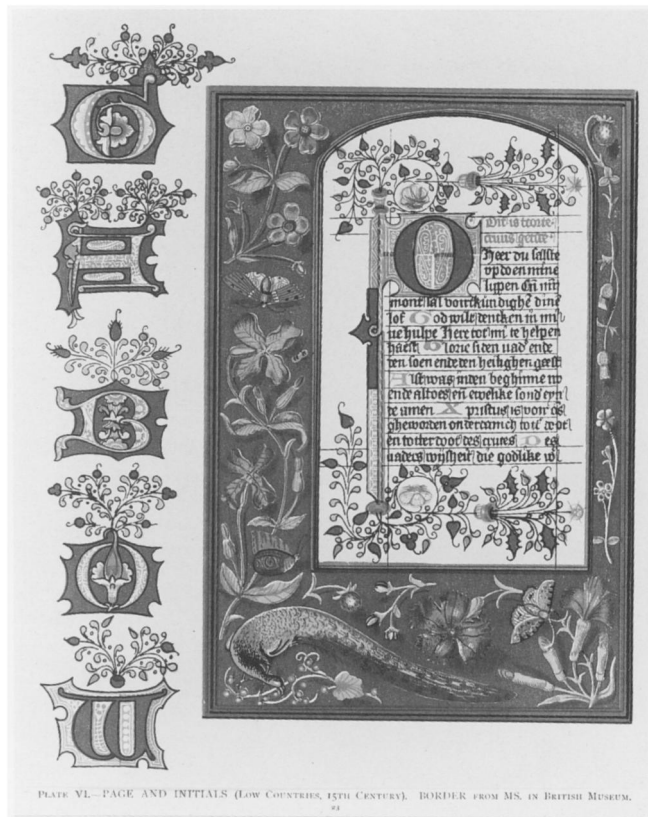 G
H
B
O
W
Dit is teerte
cruus getide
O Heer du sallste
opdoen mine
lippen En mȳ
mont sal voirtkundighe dine
lof God wilt dencken in mī
ne hulpe Here tot mī te helpen
haest Glorie si den vad' ende
den soen ende den heilighen geest
Alst was inden beghinne nv
ende altoes en̄ ewelike sond' eynd'
de amen Xpristus is voir ōs
gheworden onderdanich totter doot
en totter doot des cruces Des
vaders wijsheit die godlike w
PLATE VI.—PAGE AND INITIALS (LOW COUNTRIES, 15TH CENTURY). BORDER FROM MS. IN BRITISH MUSEUM.